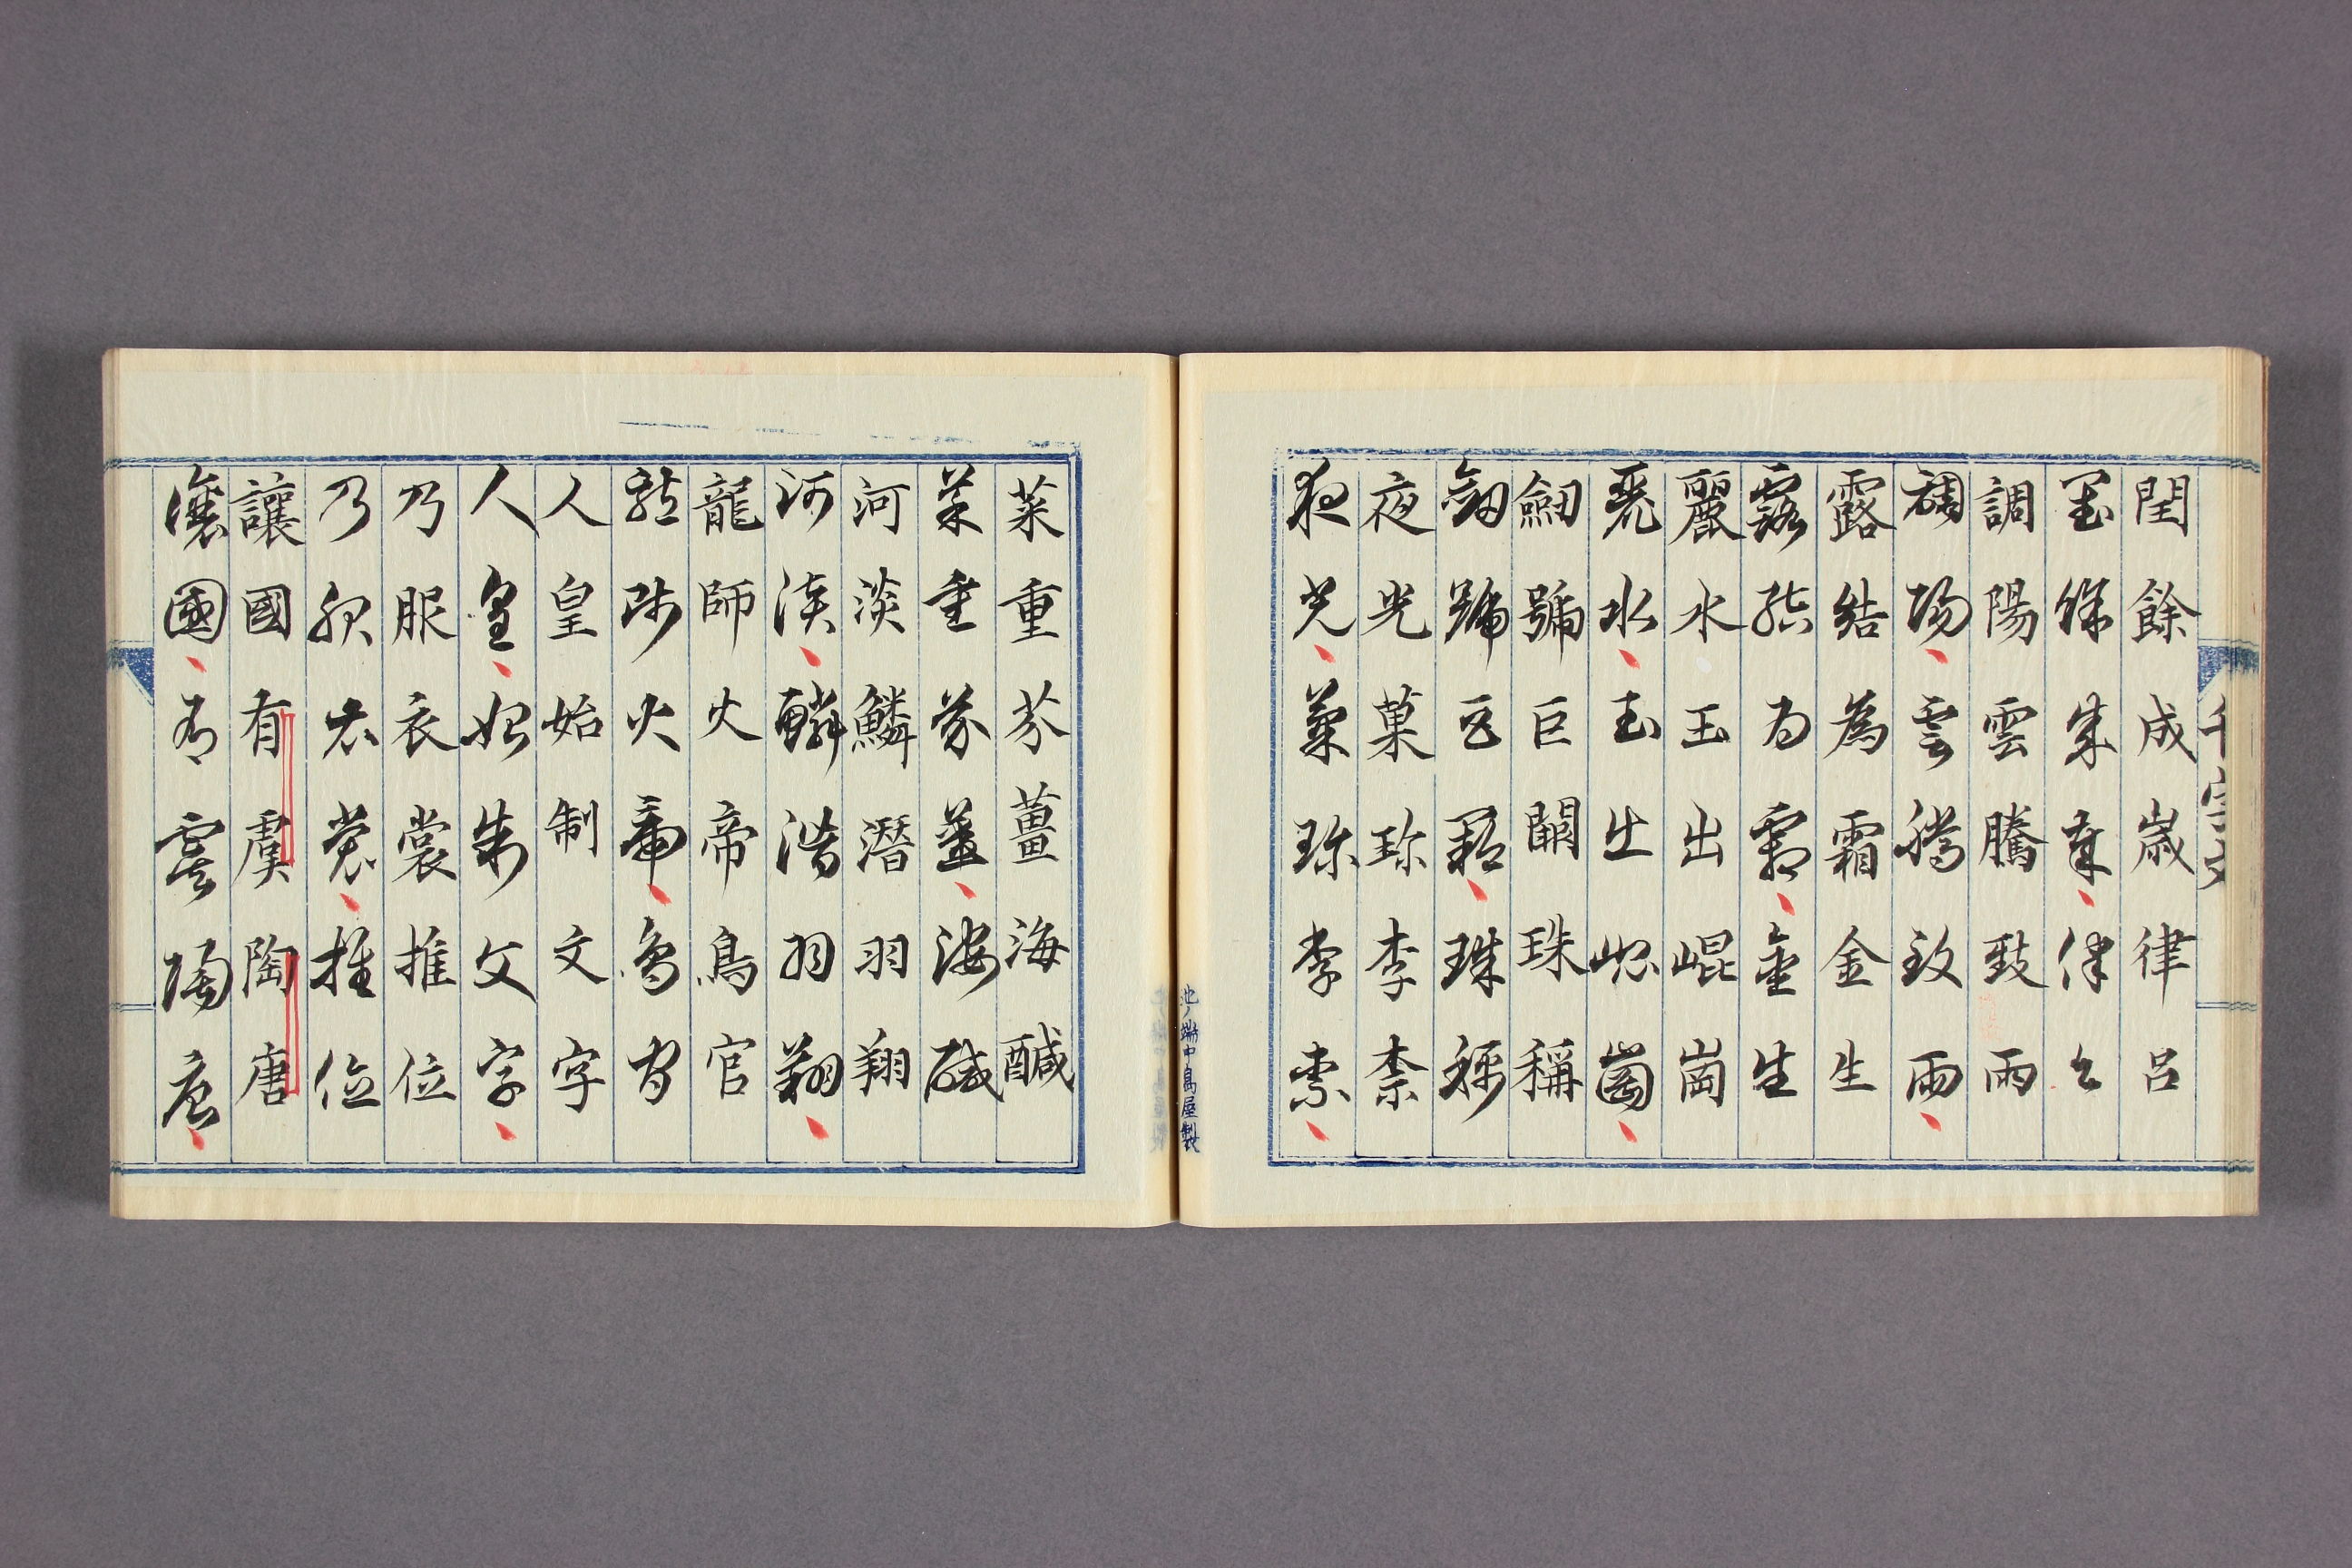 千字文
閏餘成歳律呂
閏餘成歳律呂
調陽雲騰致雨
調陽雲騰致雨
露結為霜金生
露結為霜金生
麗水玉出崐崗
麗水玉出崐崗
劒號巨闕珠稱
劒號巨闕珠稱
夜光菓珎李柰
夜光菓珎李柰
池ノ端中島屋製
菜重芥薑海醎
菜重芥薑海醎
河淡鱗潜羽翔
河淡鱗潜羽翔
龍師火帝鳥官
龍師火帝鳥官
人皇始制文字
人皇始制文字
乃服衣裳推位
乃服衣裳推位
讓國有虞陶唐
讓國有虞陶唐